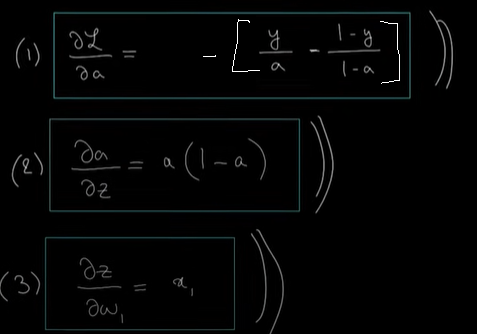 (1) ∂L/∂a = - [ y/a - 1-y/1-a ]
(2) ∂a/∂z = a(1-a)
(3) ∂z/∂w₁ = x₁